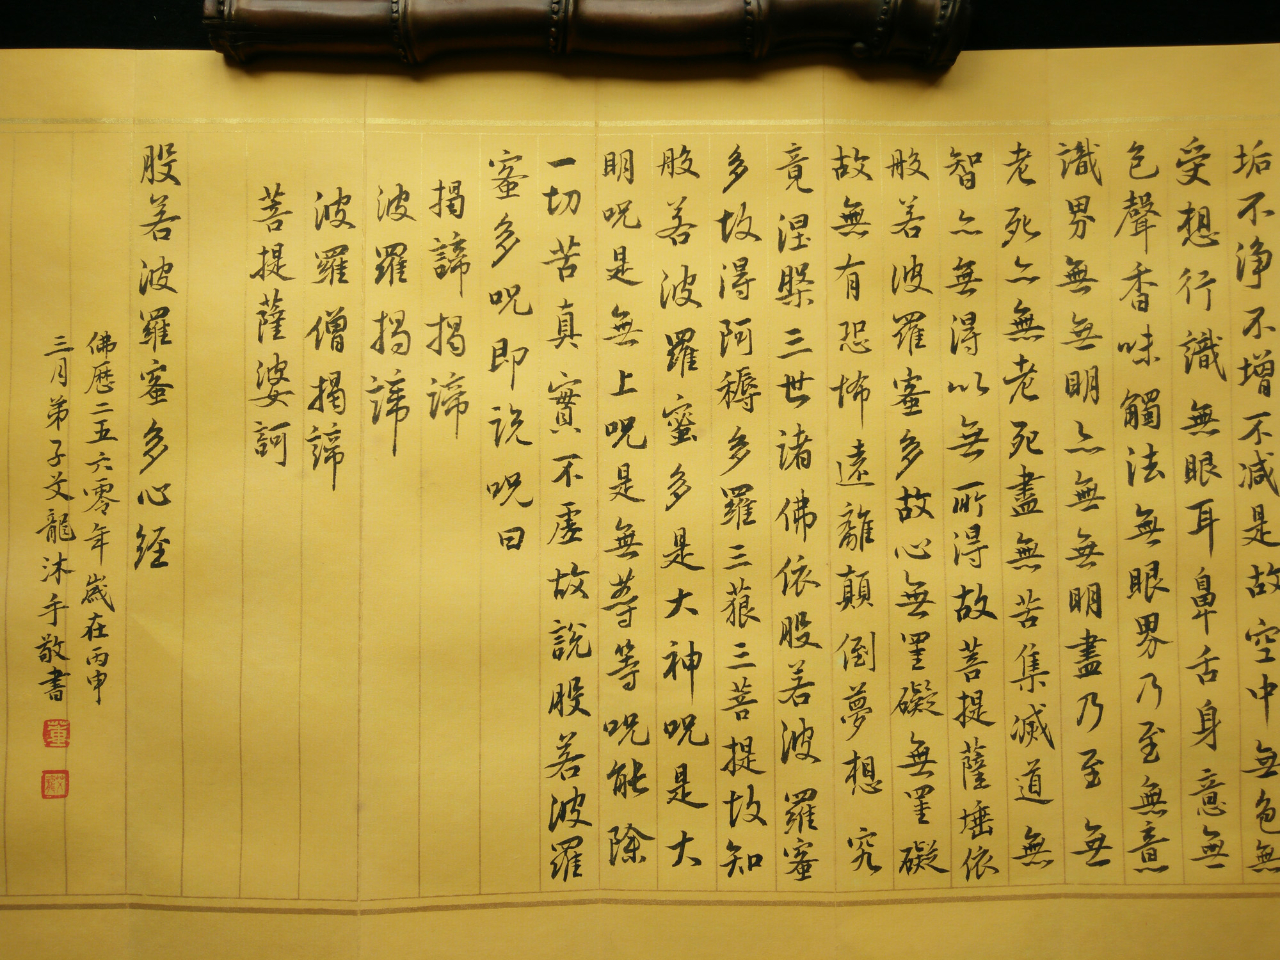 垢不净不增不减是故空中無色無
受想行識無眼耳鼻舌身意無
色聲香味觸法無眼界乃至無意
識界無無明亦無無明盡乃至無
老死亦無老死盡無苦集滅道無
智亦無得以無所得故菩提薩埵依
般若波羅蜜多故心無罣礙無罣礙
故無有恐怖遠離顛倒夢想究
竟涅槃三世諸佛依般若波羅蜜
多故得阿耨多羅三藐三菩提故知
般若波羅蜜多是大神呪是大
明呪是無上呪是無等等呪能除
一切苦真實不虛故說般若波羅
蜜多呪即说呪曰
揭諦揭諦
波羅揭諦
波羅僧揭諦
菩提薩婆訶
般若波羅蜜多心经
佛曆二五六零年歲在丙申
三月弟子艾龍沐手敬書
董